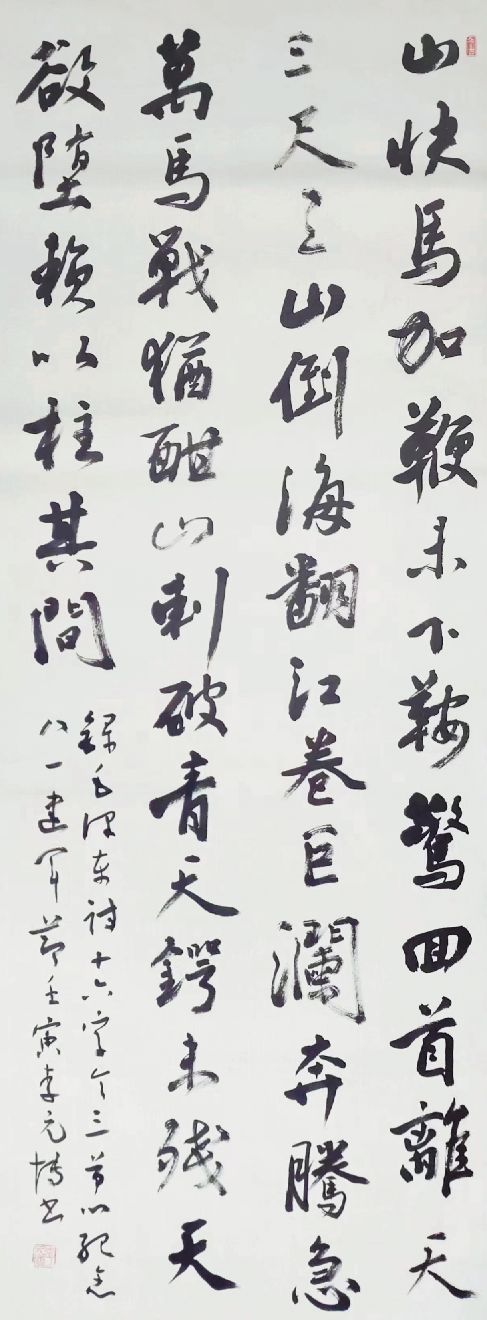 山快馬加鞭未下鞍驚回首離天
三尺三山倒海翻江卷巨瀾奔騰急
萬馬戰猶酣山刺破青天鍔未殘天
欲墮賴以柱其間
錄毛澤東詩十六字令三首以紀念
八一建軍節壬寅李元博書